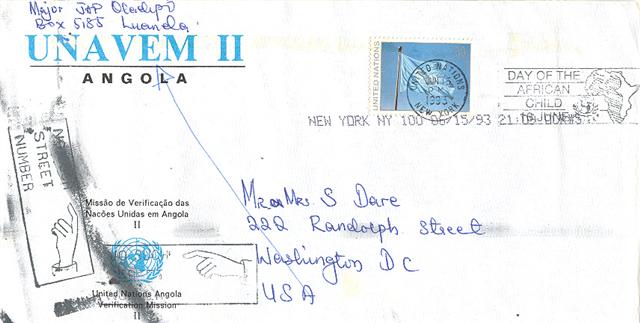 Major
Box 5185 Luanda
UNAVEM II
ANGOLA
UNITED NATIONS
UNITED NATIONS
1993
NEW YORK
DAY OF THE
AFRICAN
CHILD
16 JUNE
NEW YORK NY 100 06/15/93
NO
STREET
NUMBER
Missão de Verificação das
Nacões Unidas em Angola
II
United Nations Angola
Verification Mission
II
Mr Mrs S Dare
222 Randolph Street
Washington DC
USA